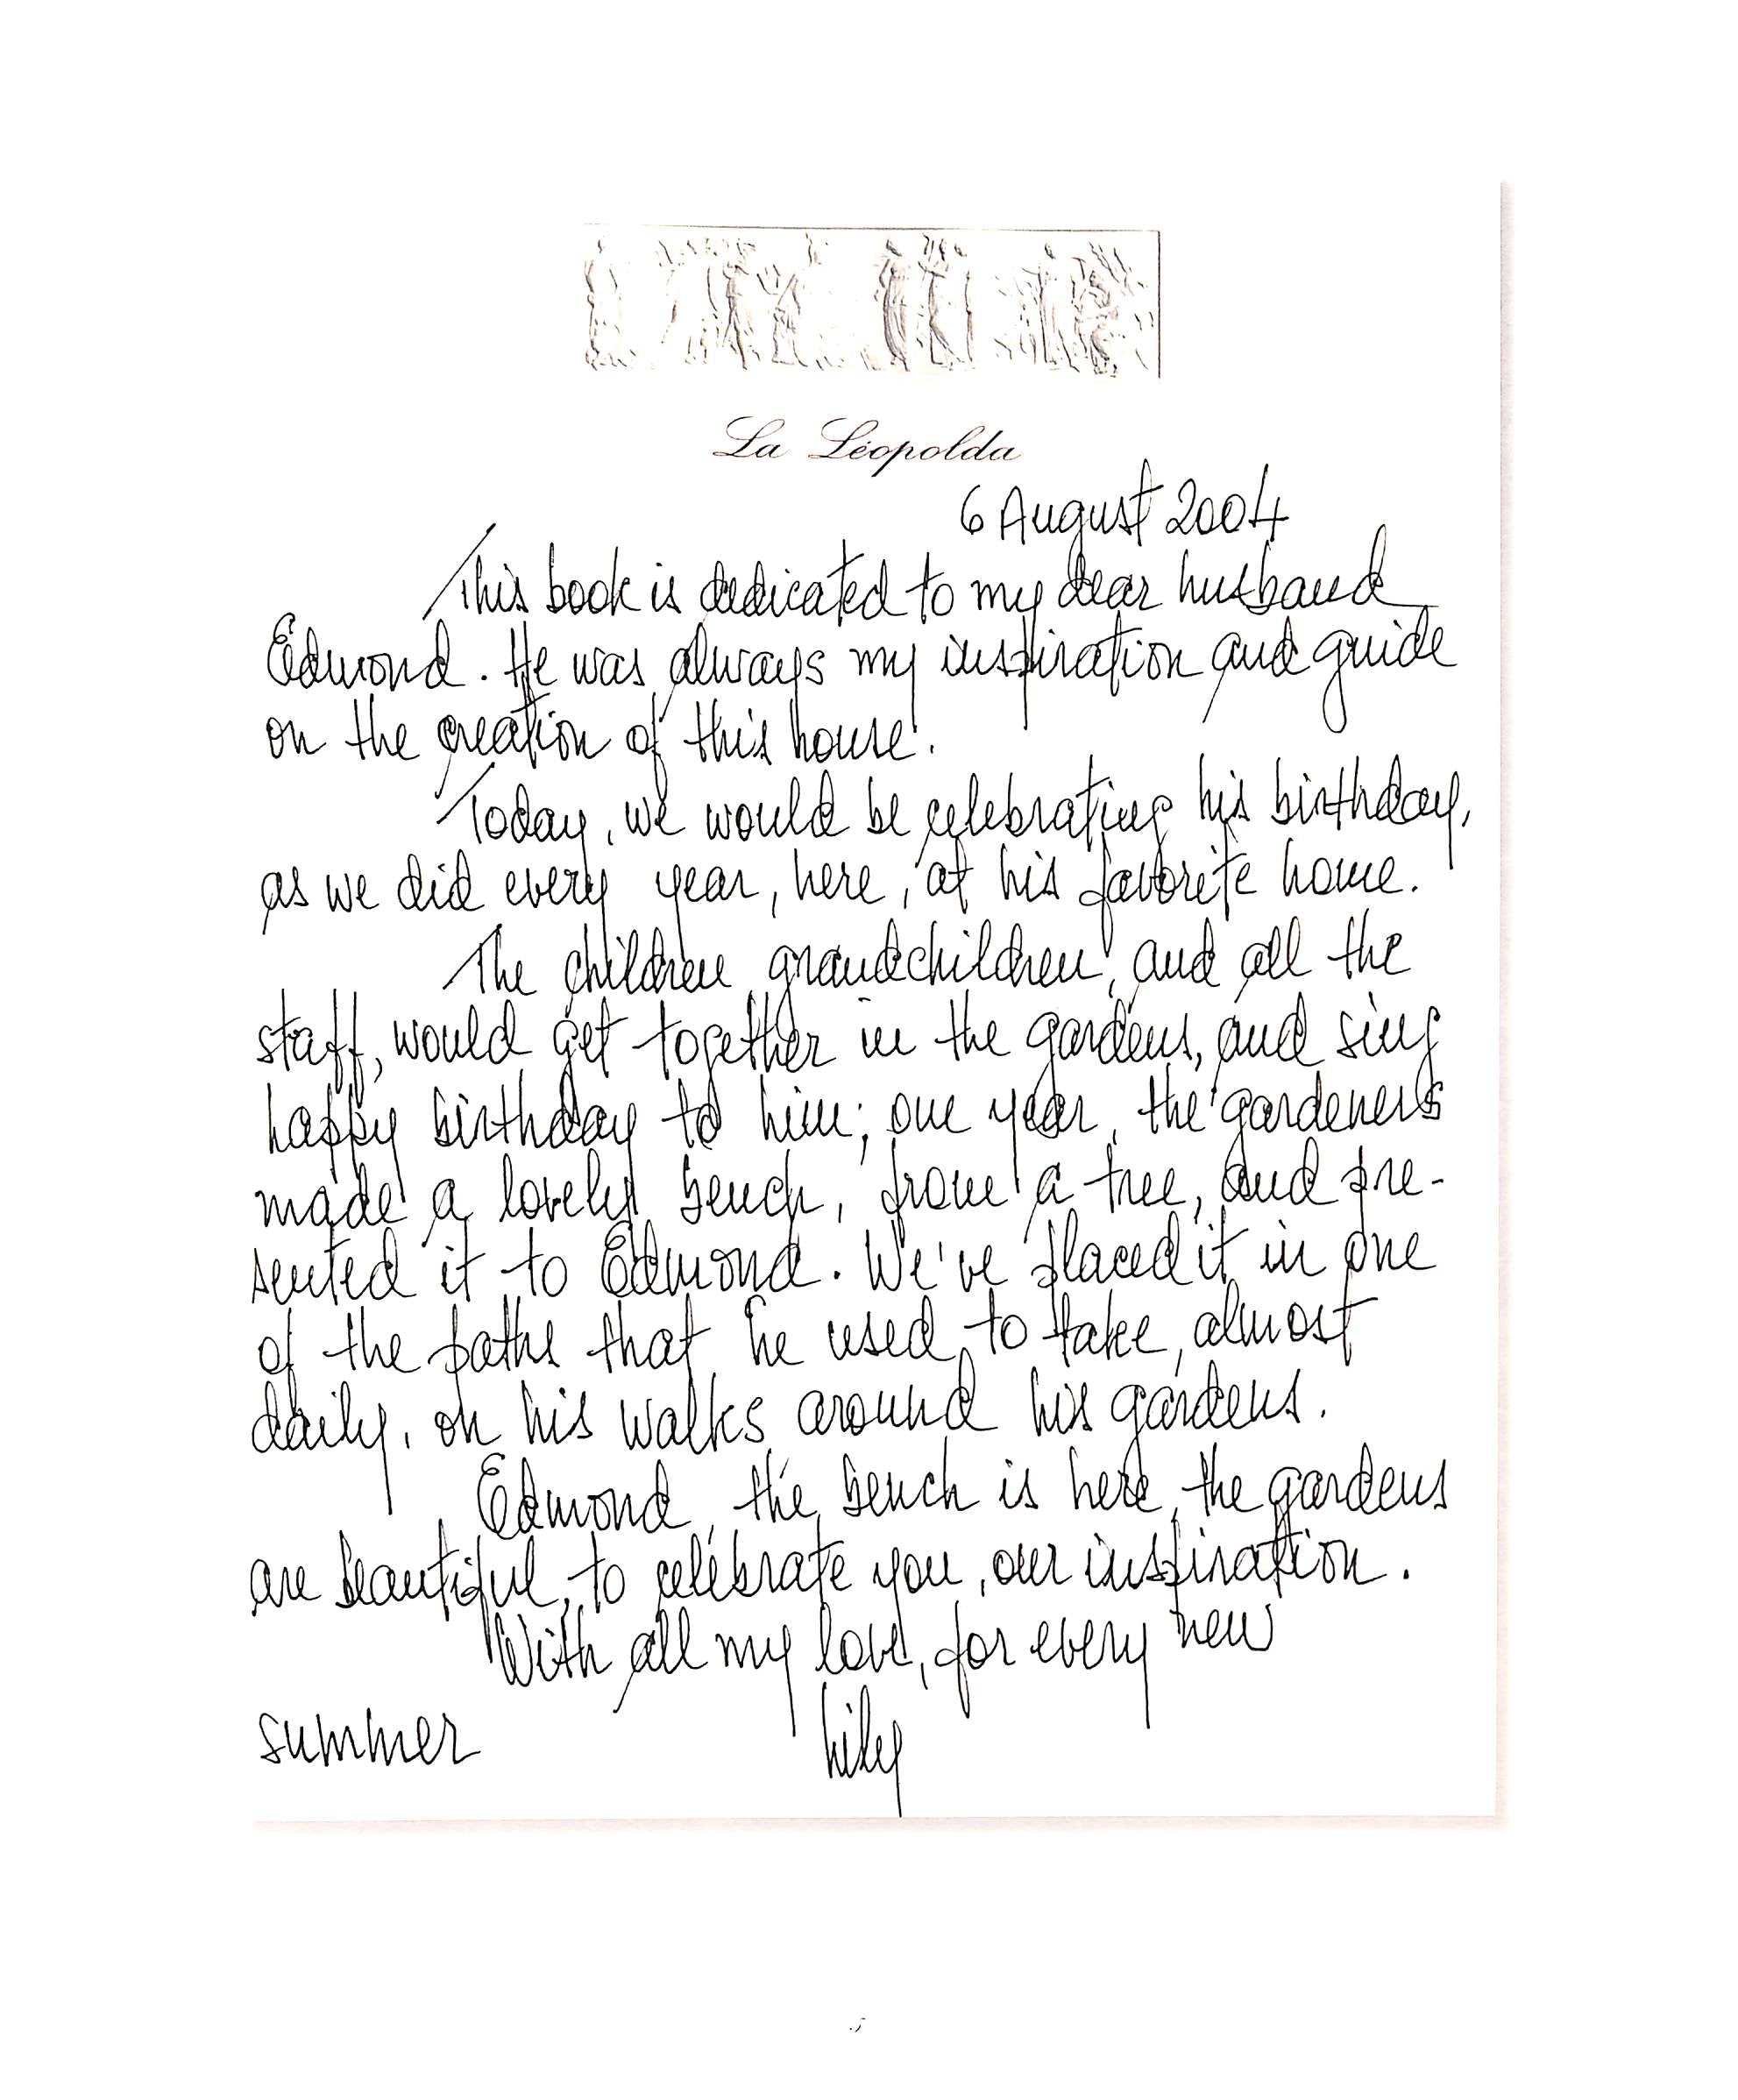 La Léopolda
6 August 2004
This book is dedicated to my dear husband
Edmond. He was always my inspiration and guide
on the creation of this house.
Today, we would be celebrating his birthday,
as we did every year, here, at his favorite home.
The children, grandchildren, and all the
staff, would get together in the gardens, and sing
happy birthday to him; one year, the gardeners
made a lovely bench, from a tree, and pre-
sented it to Edmond. We've placed it in one
of the paths that he used to take, almost
daily, on his walks around his gardens.
Edmond, the bench is here, the gardens
are beautiful, to celebrate you, our inspiration.
With all my love, for every new
summer
Lily
5